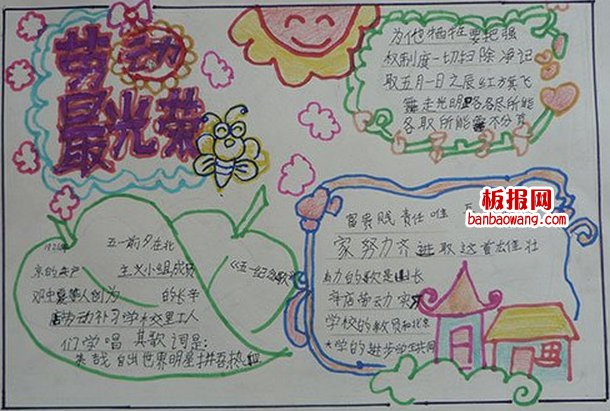 劳动
最光荣
为他牺牲要把强
权制度一切扫除净记
取五月一日之辰红旗飞
走光明 各尽所能
各取所能 不分
板报网
banbaowang.com
富贵贱责任唯
家努力齐进取
长
辛店劳动实
学校的教员和北京
大学的进步学生共同
五一前夕在北
京的共产主义小组成员
邓中夏等人创为的长辛
店劳动补习学校里工人
们学唱 其歌词是:
美哉自由世界明星拼吾热血
《五一纪念歌》